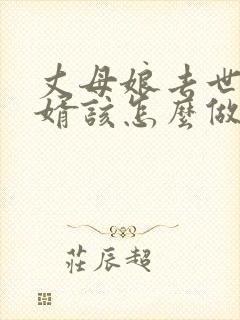 丈母娘去世
婿該怎麼做
莊辰超